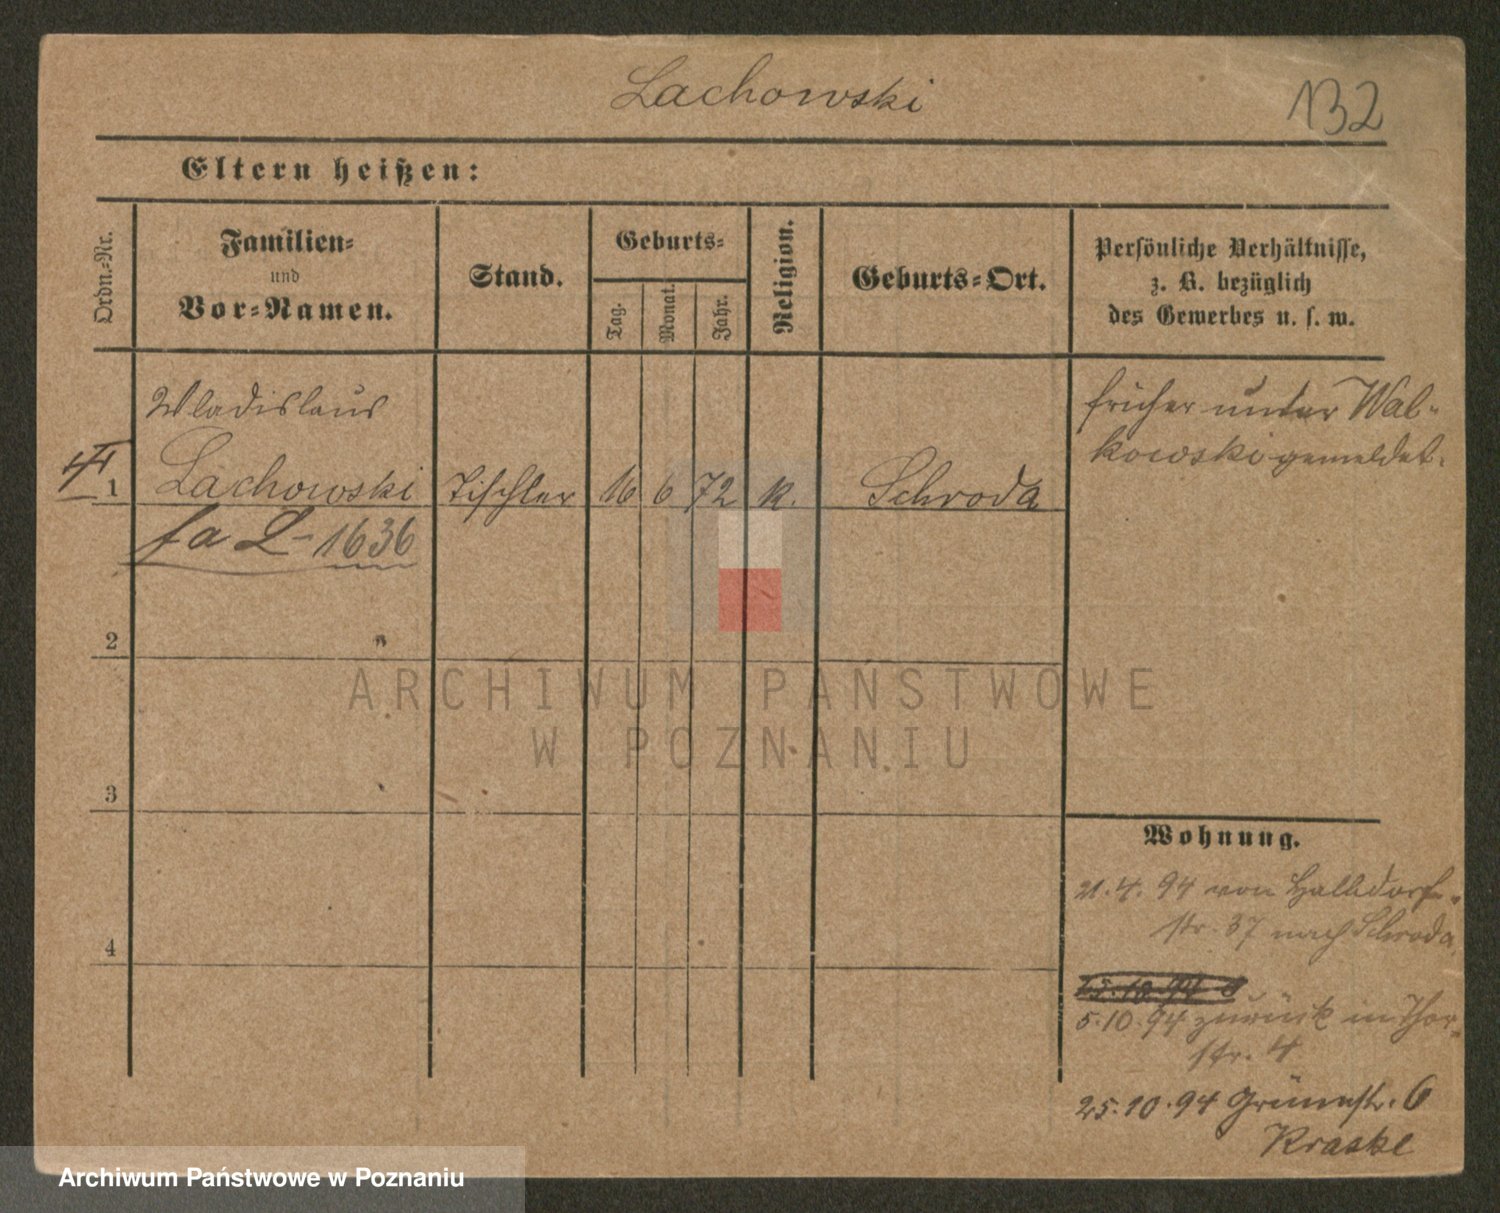 Lachowski
132
Eltern heißen:
Ordn.-Nr.
Familien-
und
Vor-Namen.
Stand.
Geburts-
Tag.
Monat.
Jahr.
Religion.
Geburts-Ort.
Persönliche Verhältnisse,
z. B. bezüglich
des Gewerbes u. s. w.
Wladislaus
1 Lachowski Tischler 16 6 72 k. Schroda
fa L-1636
früher unter Wal-
kowski gemeldet.
2
3
4
Wohnung.
21.4.94 von Halbdorf-
str. 37 nach Schroda
5.10.94 zurück in Thor-
str. 4
25.10.94 Grünestr. 6
Kraske
ARCHIWUM PAŃSTWOWE
W POZNANIU
Archiwum Państwowe w Poznaniu